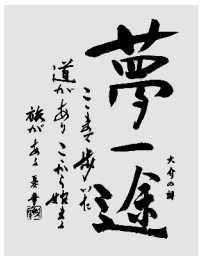 夢一途
大介の詩
ここまで歩いた
道があり ここから始まる
旅がある